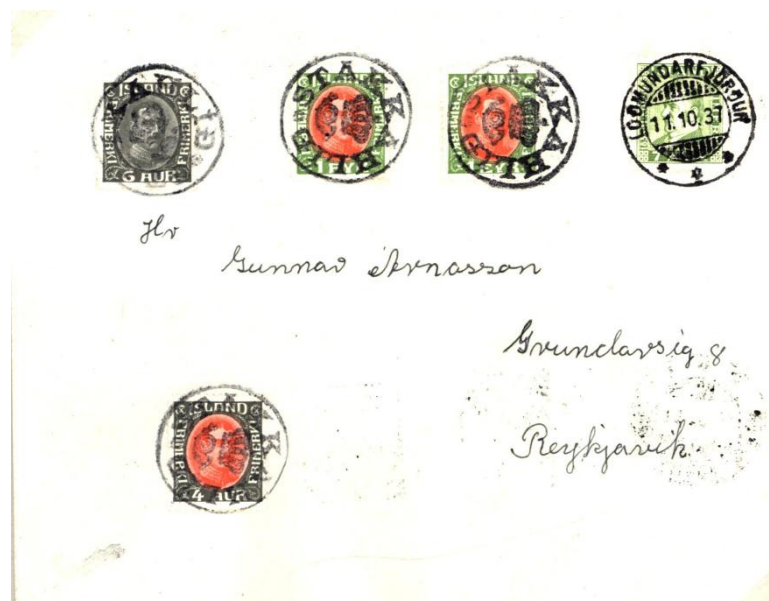 ISLAND
FRIMERKI
6 AUR
ISLAND
1 EYR
ISLAND
1 EYR
LODMUNDARFJORDUR
11.10.37
Hr
Gunnar Arnasson
Grundarsig 8
Reykjavik.
ISLAND
FRIMERKI
4 AUR